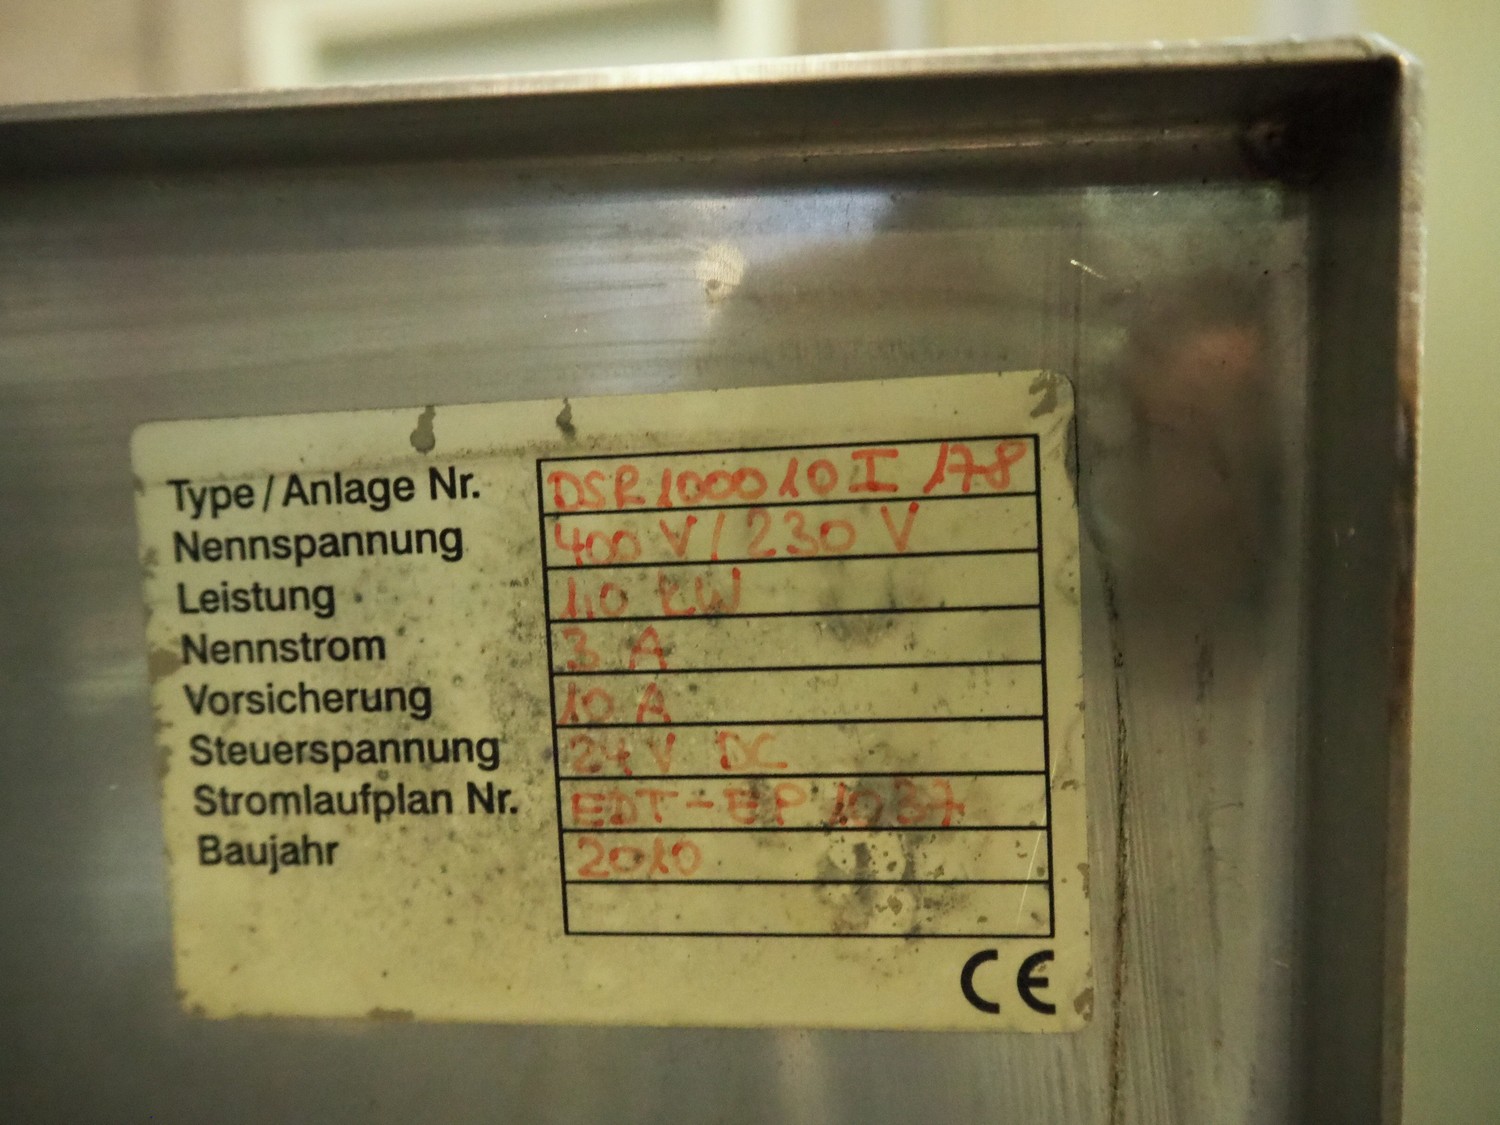 Type / Anlage Nr. DSR 1000 10 I 178
Nennspannung 400 V / 230 V
Leistung 1,0 kW
Nennstrom 3 A
Vorsicherung 10 A
Steuerspannung 24 V DC
Stromlaufplan Nr. EDT-EP 1037
Baujahr 2010
CE